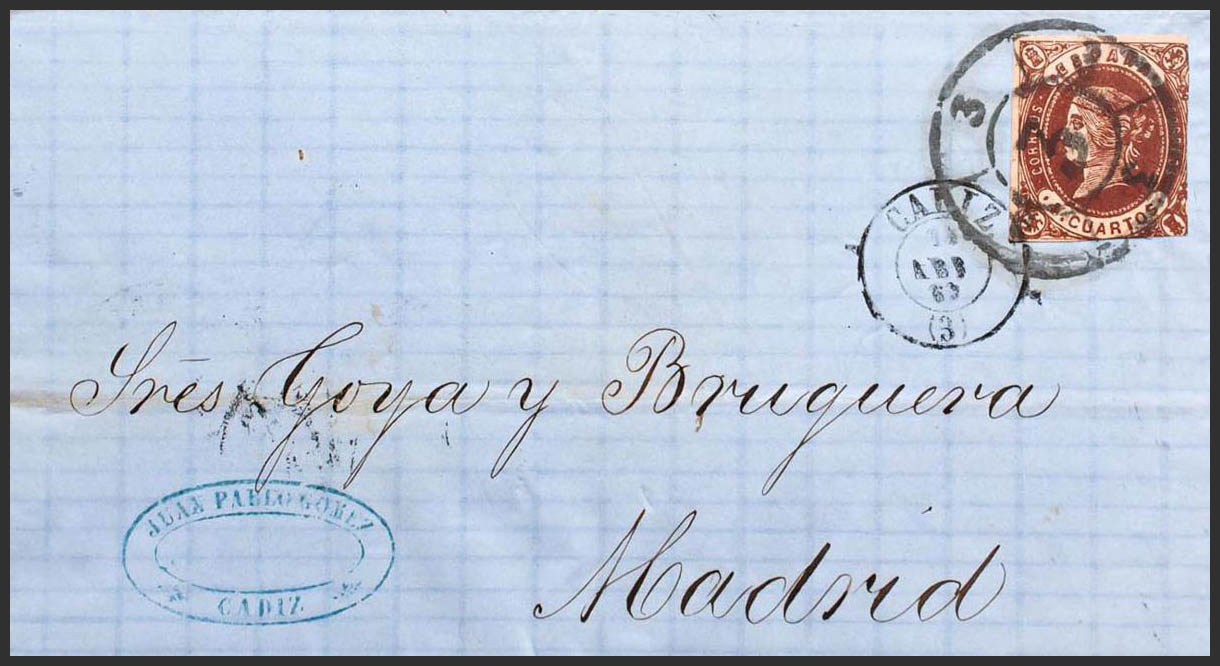 CORREOS DE ESPAÑA
4 CUARTOS
3
CADIZ
ABR
63
(3)
Srēs Goya y Bruguera
Madrid
JUAN PABLO GOMEZ
CADIZ